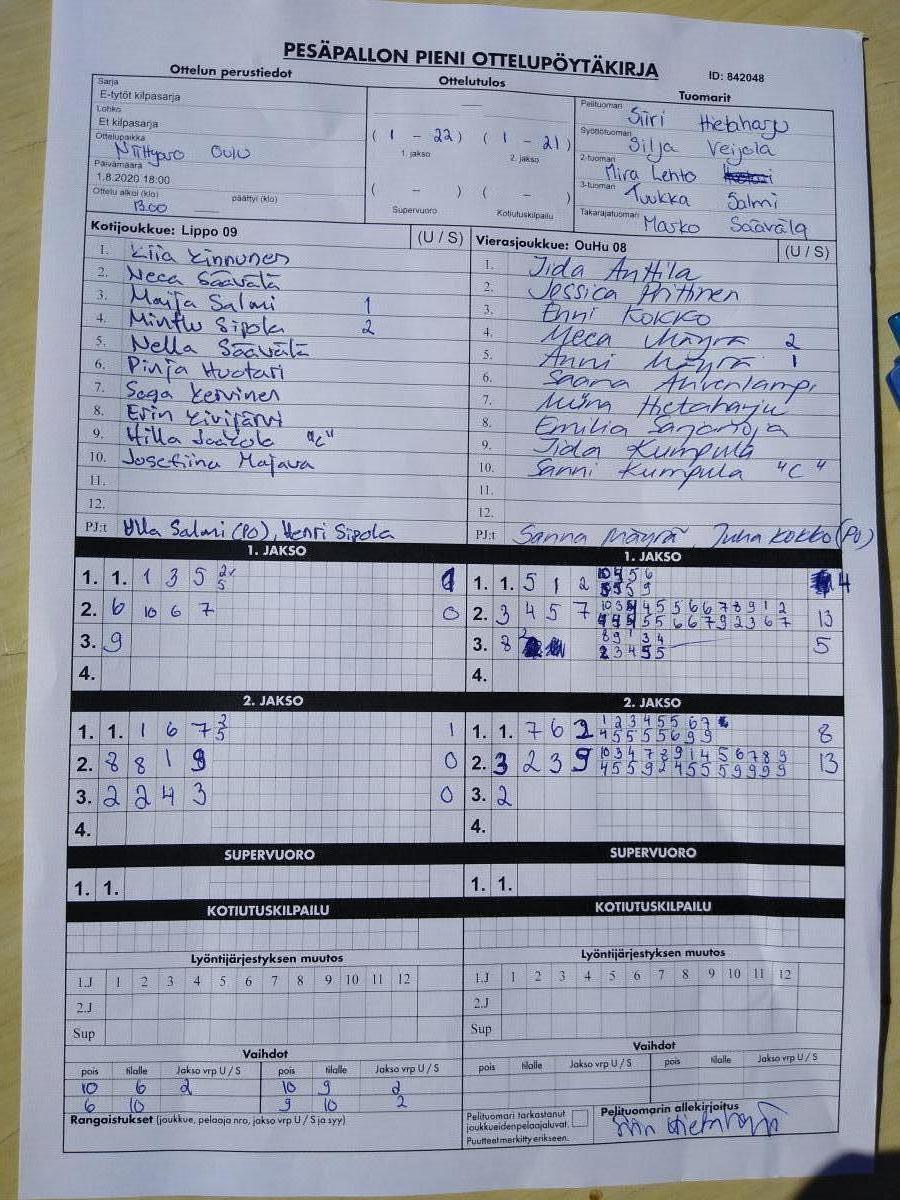 PESÄPALLON PIENI OTTELUPÖYTÄKIRJA
ID: 842048
Ottelun perustiedot
Ottelutulos
Tuomarit
Sarja
E-tytöt kilpasarja
Lohko
Et kilpasarja
Ottelupaikka
Niittyaro Oulu
Päivämäärä
1.8.2020 18:00
Ottelu alkoi (klo) päättyi (klo)
13.00
( 1 - 22 ) ( 1 - 21 )
1. jakso 2. jakso
( - ) ( - )
Supervuoro Kotiutuskilpailu
Pelituomari Siiri Hietaharju
Syöttötuomari Silja Veijola
2-tuomari Mira Lehto
3-tuomari Tuukka Salmi
Takarajatuomari Marko Säävälä
Kotijoukkue: Lippo 09 (U / S)
1. Kiia Kinnunen
2. Neea Säävälä
3. Maija Salmi 1
4. Minttu Sipola 2
5. Nella Säävälä
6. Pinja Huotari
7. Saga Kervinen
8. Erin Kivijärvi
9. Hilla "C"
10. Josefiina Majava
11.
12.
PJ:t Ulla Salmi (PO), Henri Sipola
Vierasjoukkue: OuHu 08 (U / S)
1. Iida Anttila
2. Jessica Anttinen
3. Enni Kokko
4. Meea Mäyrä 2
5. Anni Mäyrä 1
6. Saana Ahvenlampi
7. Miina Hietaharju
8. Emilia
9. Iida Kumpula
10. Sanni Kumpula "C"
11.
12.
PJ:t Sanna Mäyrä, Juha Kokko (PO)
1. JAKSO
1. 1. 1 3 5 1
2. 6 10 6 7 0
3. 9
4.
1. JAKSO
1. 1. 5 1 2 4
2. 3 4 5 7 10 3 4 4 5 5 6 6 7 8 9 1 2 13
5 5 6 6 7 9 2 3 6 7
3. 8 8 9 1 3 4 5
2 3 4 5 5
4.
2. JAKSO
1. 1. 1 6 7 3 1
5
2. 8 8 1 9 0
3. 2 2 4 3 0
4.
2. JAKSO
1. 1. 7 6 2 1 2 3 4 5 5 6 7 8
4 5 5 5 5 6 9 9
2. 3 2 3 9 10 3 4 7 8 9 1 4 5 6 7 8 9 13
4 5 5 9 2 4 5 5 5 9 9 9 9
3. 2
4.
SUPERVUORO
1. 1.
SUPERVUORO
1. 1.
KOTIUTUSKILPAILU
KOTIUTUSKILPAILU
Lyöntijärjestyksen muutos
1.J 1 2 3 4 5 6 7 8 9 10 11 12
2.J
Sup
Lyöntijärjestyksen muutos
1.J 1 2 3 4 5 6 7 8 9 10 11 12
2.J
Sup
Vaihdot
pois tilalle Jakso vrp U / S pois tilalle Jakso vrp U / S
10 6 2 10 9 2
6 10 9 10 2
Vaihdot
pois tilalle Jakso vrp U / S pois tilalle Jakso vrp U / S
Rangaistukset (joukkue, pelaaja nro, jakso vrp U / S ja syy)
Pelituomari tarkastanut
joukkueidenpelaajaluvat.
Puutteet merkitty erikseen.
Pelituomarin allekirjoitus
Siiri Hietaharju